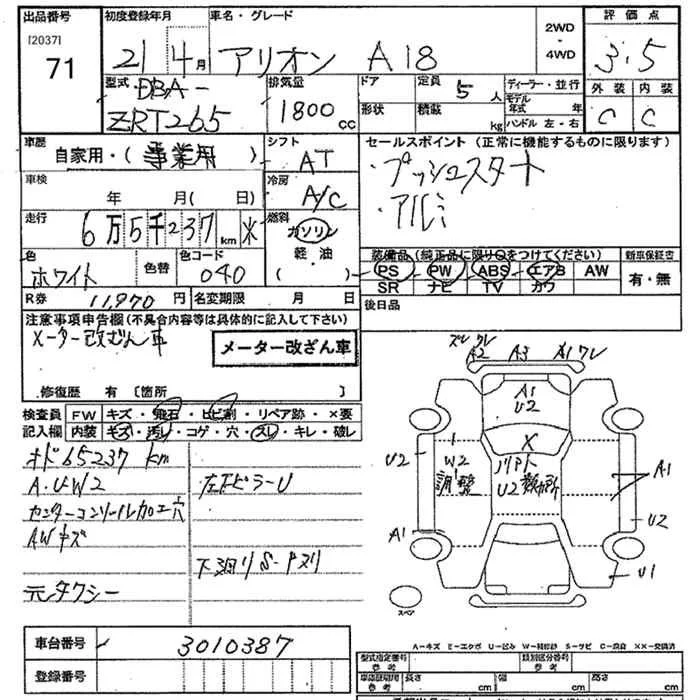 出品番号 初度登録年月 車名・グレード 2WD・4WD 評価点
[2037]
71 21 4月 アリオン A18 3.5
型式 DBA- 排気量 ドア 定員 5人 ディーラー・並行 外装 内装
ZRT265 1800cc 形状 積載 kg モデル年式 年 ハンドル 左・右 C C
車歴 シフト セールスポイント(正常に機能するものに限ります)
自家用・(事業用) AT ・プッシュスタート
車検 冷房 ・アルミ
年 月( 日) A/C
走行 燃料
6万5千237km ※ ガソリン
色 色替 色コード 軽油 装備品(純正品に限り○をつけてください) 新車保証書
ホワイト 040 ( ) PS PW ABS エアB AW 有・無
SR ナビ TV カワ
R券 11,970円 名変期限 月 日 後日品
注意事項申告欄(不具合内容等は具体的に記入して下さい)
メーター改ざん車 メーター改ざん車
修復歴 有 〔箇所 〕
検査員 FW キズ・飛石・ヒビ割・リペア跡・×要
記入欄 内装 キズ・汚レ・コゲ・穴・スレ・キレ・破レ
オド65237km
A.U.W2 左Bピラーu
センターコンソール加工穴
AWキズ
下廻りS-Pヌリ
元タクシー
ズレ ワレ
A2 A3 A1ワレ
A1
U2
X
U2 W2 U2 A1
調整
A1 U2
U1
スペア
車台番号 3010387
登録番号
A-キズ E-エクボ U-凹み W-補修跡 S-サビ C-腐食 XX-交換済
型式指定番号 参考 類別区分番号 参考
車庫証明用 参考 長さ cm 幅 cm 高さ cm